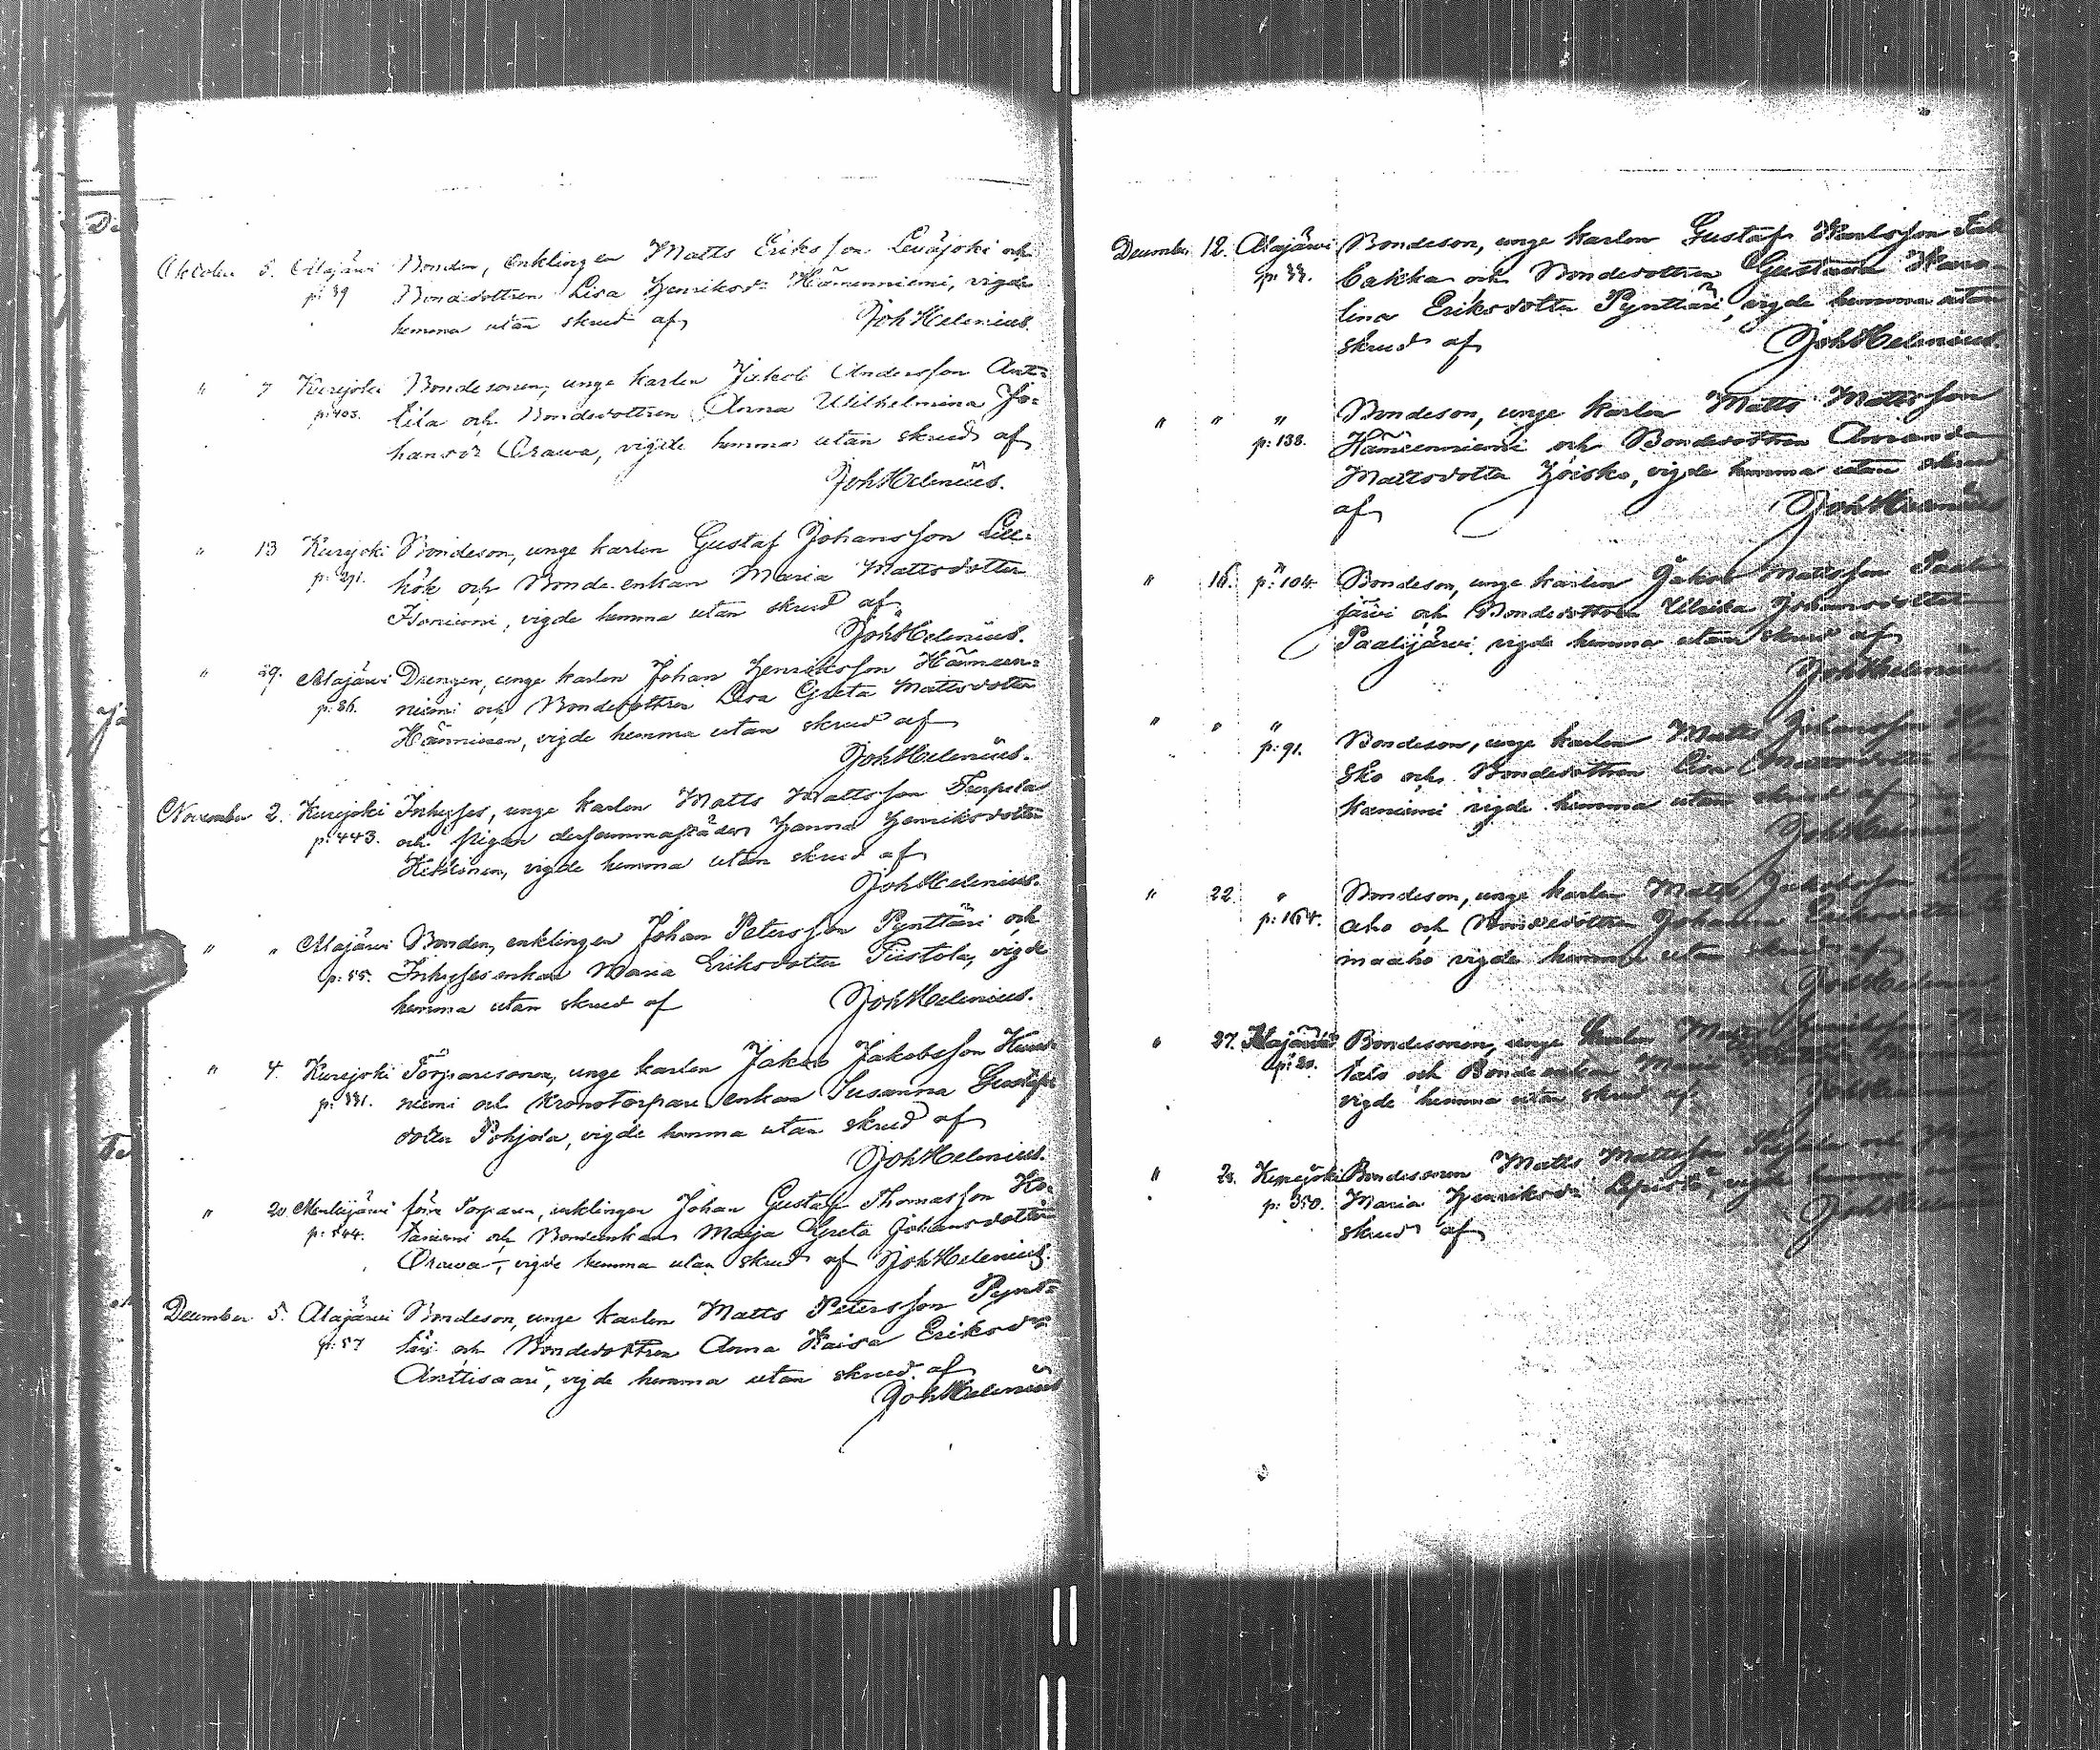 Oktober 5. Alajärvi Bonden, enklingen Matts Eriksson Leväjoki och
p: 39 Bondedottren Lisa Henriksdr Hämenniemi, vigde
hemma utan skrud af Joh Helenius.
" 7 Kurejoki Bondesonen, unge karlen Jakob Andersson Ant-
p: 403. tila och Bondedottren Anna Wilhelmina Jo-
hansdr Orawa, vigde hemma utan skrud af
Joh Helenius.
" 13 Kurejoki Bondeson, unge karlen Gustaf Johansson Lill-
p: 291. hök och Bonde enkan Maria Mattsdotter
vigde hemma utan skrud af
Joh Helenius.
" 29. Alajärvi Drengen, unge karlen Johan Henriksson Hämeen-
p: 86. niemi och Bondedottren Lisa Greta Mattsdotter
Hänninen, vigde hemma utan skrud af
Joh Helenius.
November 2. Kurejoki Inhyses, unge karlen Matts Mattsson Turpela
p: 443. och Pigan dersammastädes Hanna Henriksdotter
vigde hemma utan skrud af
Joh Helenius.
" " Alajärvi Bonden, enklingen Johan Petersson Pynttäri och
p: 55. Inhysesenkan Maria Eriksdotter Tiistola, vigde
hemma utan skrud af Joh Helenius.
" 4. Kurejoki Torparesonen, unge karlen Jakob Jakobsson
p: 331. niemi och Kronotorpare enkan Susanna Gustafs
dotter Pohjola, vigde hemma utan skrud af
Joh Helenius.
" 20 Menkijärvi förre Torparen, enklingen Johan Gustaf Thomasson Ko-
p: 544. taniemi och Bondeenkan Maija Greta Johansdotter
Orawa, vigde hemma utan skrud af Joh Helenius.
December 5. Alajärvi Bondeson, unge karlen Matts Petersson Pynt-
p: 57 täri och Bondedottren Anna Kaisa Eriksdr
Anttisaari, vigde hemma utan skrud af
Joh Helenius
December 12. Alajärvi Bondeson, unge karlen Gustaf Karlsson
p: 33. bakka och Bondedottren Gustava Karo
lina Eriksdotter Pynttäri, vigde hemma utan
skrud af Joh Helenius.
" " " Bondeson, unge karlen Matts Mattsson
p: 138. Hämeenniemi och Bondedottren Amanda
Mattsdotter Hoisko, vigde hemma utan skrud
af Joh Helenius
" 16. p: 104 Bondeson, unge karlen Jakob Mattsson Paali
järvi och Bondedottren Ulrika Johansdotter
Paalijärvi vigde hemma utan skrud af
Joh Helenius.
" " " Bondeson, unge karlen Matts Johansson
p: 91. sko och Bondedottren Lisa Mattsdotter
kaniemi vigde hemma utan skrud af
Joh Helenius
" 22. " Bondeson, unge karlen Matts Jakobsson
p: 164. aho och Bondedottren Johanna Eriksdotter
maaho vigde hemma utan skrud af
Joh Helenius
" 27. Alajärvi Bondesonen, unge karlen Matts Henriksson
p: 20. talo och Bonde enkan Maria
vigde hemma utan skrud af Joh Helenius
" 28. Kurejoki Bondesonen Matts Mattsson och
p: 350. Maria Henriksdr Lepistö, vigde hemma
skrud af Joh Helenius